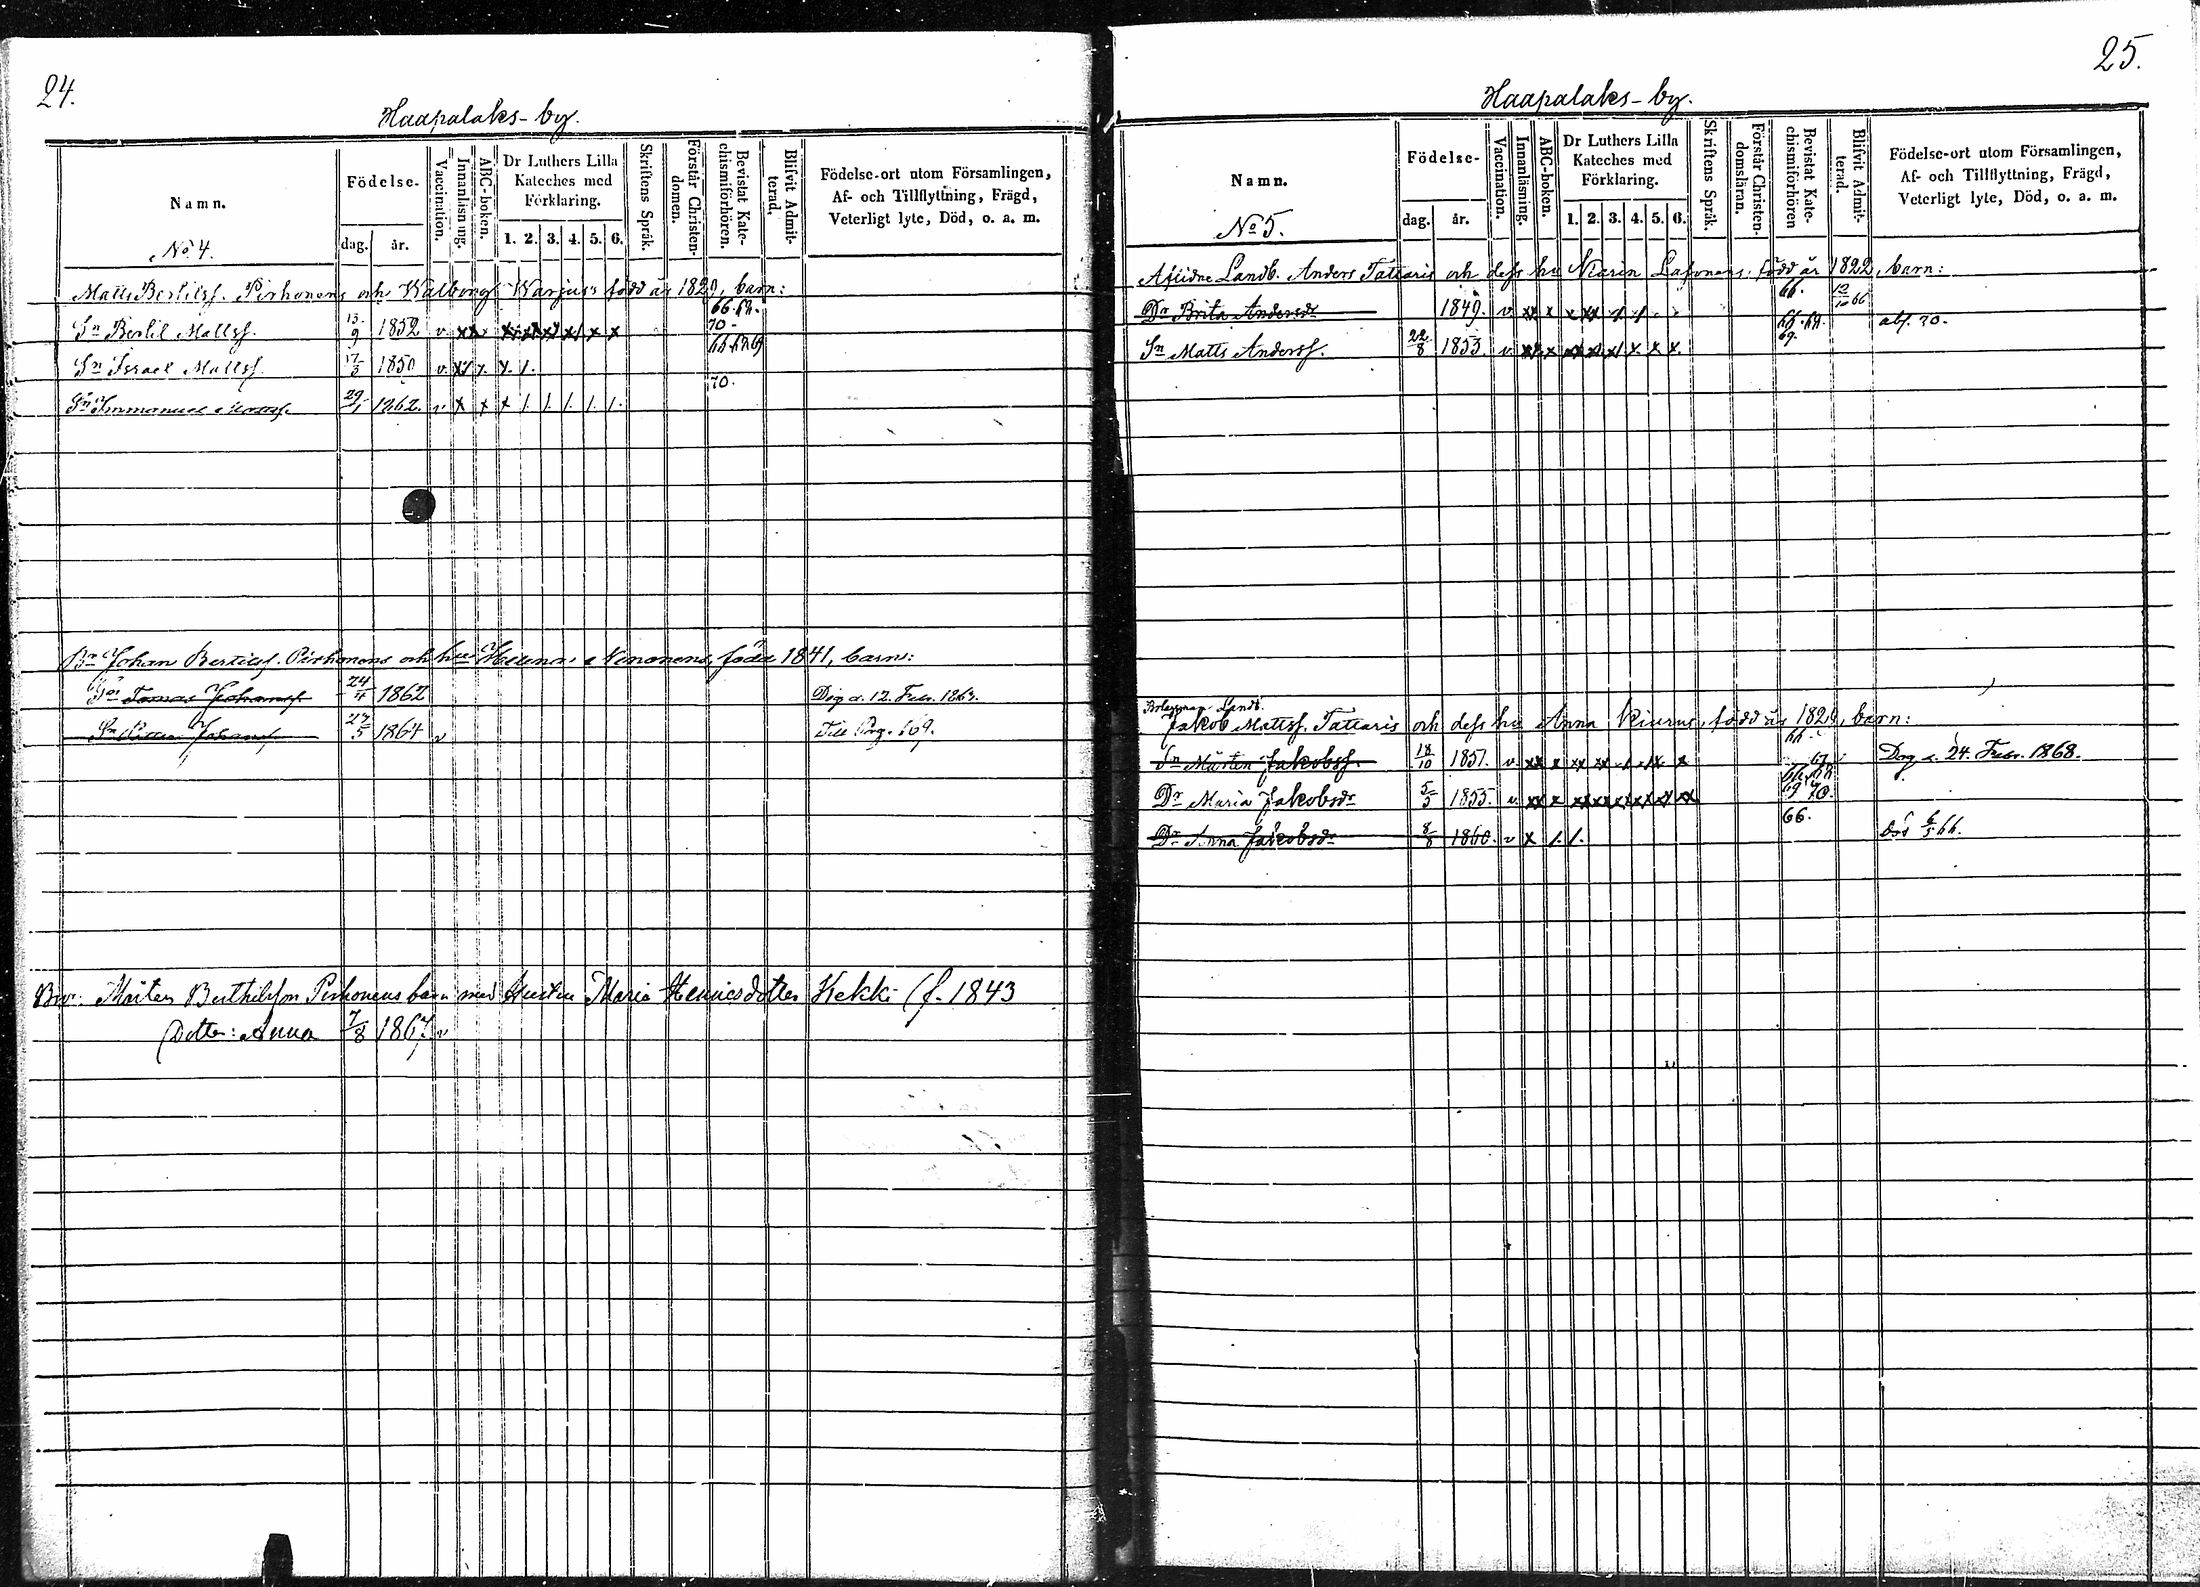 24.
Haapalaks-by.
Namn.
Födelse-
dag.
år.
Vaccination.
Innanläsning.
ABC-boken.
Dr Luthers Lilla
Kateches med
Förklaring.
1. 2. 3. 4. 5. 6.
Skriftens Språk.
Förstår Christen-
domen.
Bevistat Kate-
chismiförhören.
Blifvit Admit-
terad.
Födelse-ort utom Församlingen,
Af- och Tillflyttning, Frägd,
Veterligt lyte, Död, o. a. m.
No 4.
Matts Bertilsf. Pirhonens och Walborg Warjus's född år 1820, barn:
Sn Bertil Mattsf. 13/9 1852 v 66. 70.
Sn Israel Mattsf. 17/3 1850 v.
Sn Immanuel Mattsf. 29/1 1862. v 70.
Br Johan Bertilsf. Pirhonens och hu Nenonens, född 1841, barn:
Sn Tomas Johansf. 24/11 1862 Dog d. 12. Febr. 1863.
Sn Johansf 27/5 1864 v Till Pag. 169.
Bror: Mårten Berthilsson Pirhonens barn med hustru Maria Henricsdotter Kekki (f. 1843
Dotter: Anna 7/8 1867 v
25.
Haapalaks-by.
Namn.
Födelse-
dag.
år.
Vaccination.
Innanläsning.
ABC-boken.
Dr Luthers Lilla
Kateches med
Förklaring.
1. 2. 3. 4. 5. 6.
Skriftens Språk.
Förstår Christen-
domsläran.
Bevistat Kate-
chismiförhören
Blifvit Admit-
terad.
Födelse-ort utom Församlingen,
Af- och Tillflyttning, Frägd,
Veterligt lyte, Död, o. a. m.
No 5.
Aflidne Landb. Anders Tattaris och dess hu Karin född år 1822, barn:
Dr Brita Andersdr 1849. v 66. 12/10 66
Sn Matts Andersf. 22/8 1853. v 69. 70.
Bolagsman Landb.
Jakob Mattsf. Tattaris och dess hu Anna Kiurus, född år 1829, barn:
Sn Mårten Jakobsf. 18/10 1851. v Dog d. 24. Febr. 1868.
Dr Maria Jakobsdr 5/3 1855. v 69 70.
Dr Anna Jakobsdr 8/8 1860. v 66. död 6/5 66.